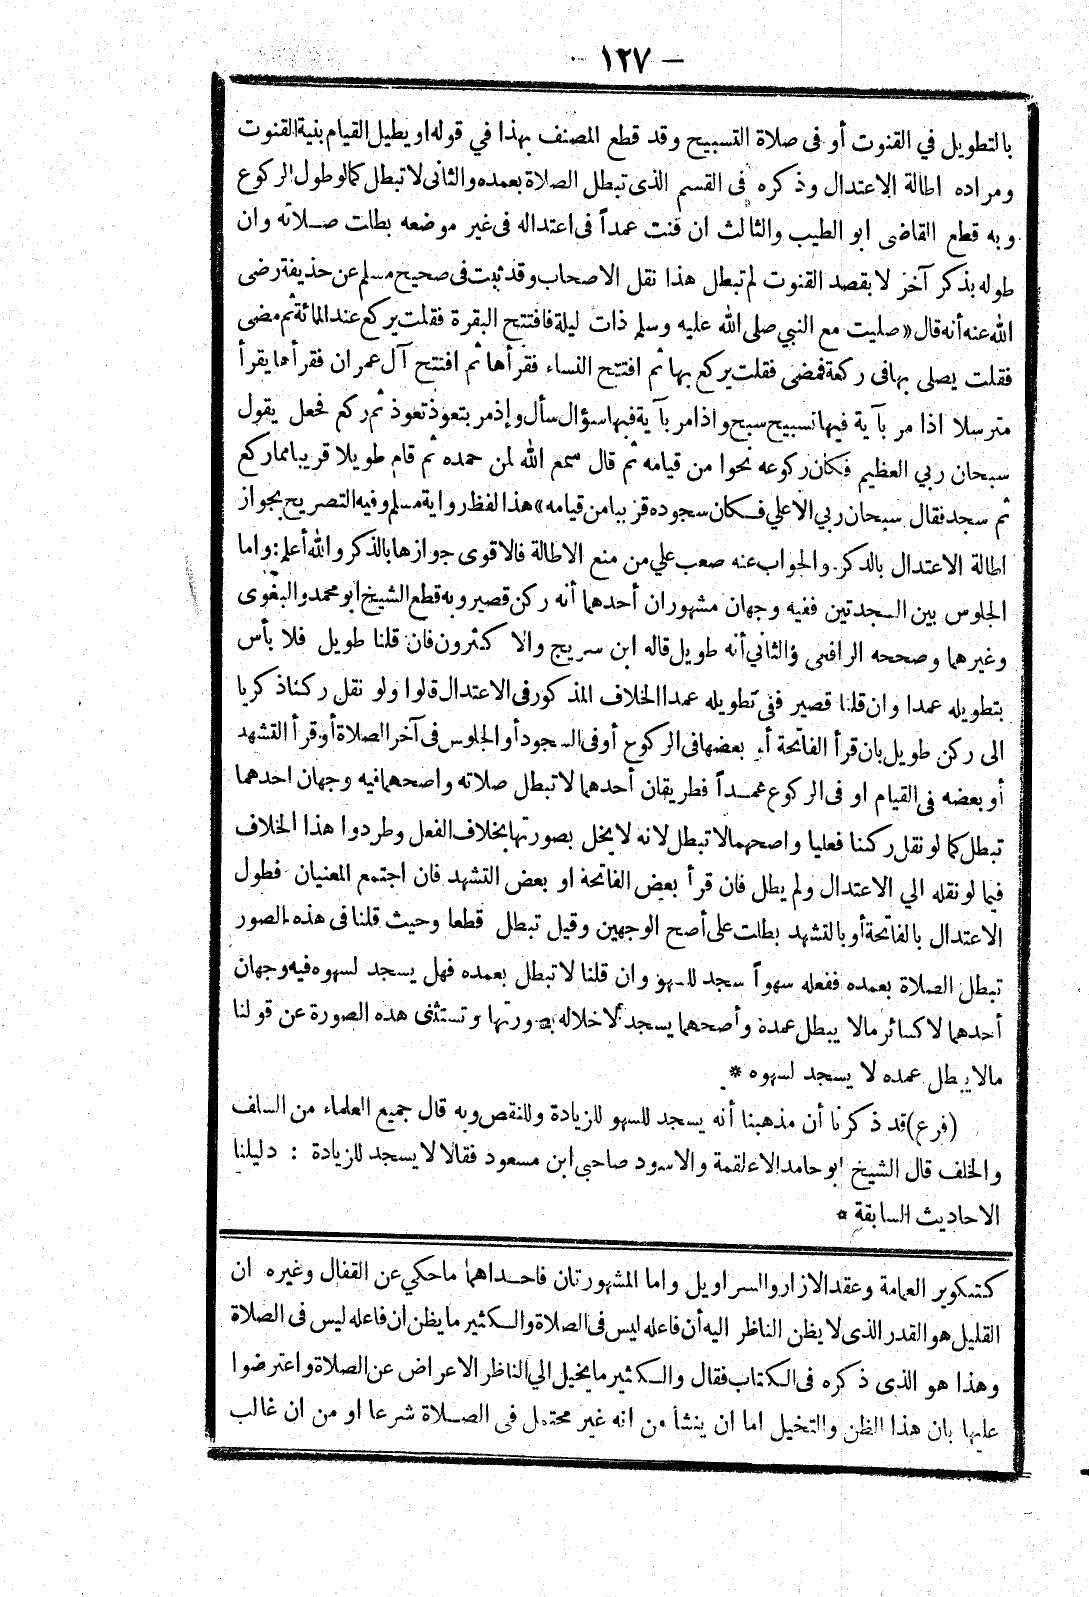 — ١٢٧ —
بالتطويل في القنوت أو فى صلاة التسبيح وقد قطع المصنف بهذا في قوله او يطيل القيام بنية القنوت
ومراده اطالة الاعتدال وذكره فى القسم الذى تبطل الصلاة بعمده والثانى لا تبطل كما لو طول الركوع
وبه قطع القاضى ابو الطيب والثالث ان قنت عمداً فى اعتداله فى غير موضعه بطلت صلاته وان
طوله بذكر آخز لا بقصد القنوت لم تبطل هذا نقل الاصحاب وقد ثبت فى صحيح مسلم عن حذيفة رضى
الله عنه أنه قال « صليت مع النبي صلى الله عليه وسلم ذات ليلة فافتتح البقرة فقلت يركع عند المائة ثم مضى
فقلت يصلى بها فى ركعة فمضى فقلت يركع بها ثم افتتح النساء فقرأها ثم افتتح آل عمران فقرأها يقرأ
مترسلا اذا مر بآية فيها تسبيح سبح واذا مر بآية فيها سؤال سأل وإذ مر بتعوذ تعوذ ثم ركع فجعل يقول
سبحان ربي العظيم فكان ركوعه نحوا من قيامه ثم قال سمع الله لمن حمده ثم قام طويلا قريبا مما ركع
ثم سجد فقال سبحان ربي الاعلي فكان سجوده قريبا من قيامه » هذا لفظ رواية مسلم وفيه التصريح بجواز
اطالة الاعتدال بالذكر والجواب عنه صعب علي من منع الاطالة فالاقوى جوازها بالذكر والله أعلم : واما
الجلوس بين السجدتين ففيه وجهان مشهوران أحدهما أنه ركن قصير وبه قطع الشيخ ابو محمد والبغوى
وغيرهما وصححه الرافعى والثاني أنه طويل قاله ابن سريج والاكثرون فان قلنا طويل فلا بأس
بتطويله عمدا وان قلنا قصير ففى تطويله عمدا الخلاف المذكور فى الاعتدال قالوا ولو نقل ركنا ذكريا
الى ركن طويل بان قرأ الفاتحة أو بعضها فى الركوع أو فى السجود أو الجلوس فى آخر الصلاة أو قرأ التشهد
أو بعضه فى القيام او فى الركوع عمداً فطريقان أحدهما لا تبطل صلاته واصحهما فيه وجهان احدهما
تبطل كما لو نقل ركنا فعليا واصحهما لا تبطل لانه لا يخل بصورتها بخلاف الفعل وطردوا هذا الخلاف
فيما لو نقله الي الاعتدال ولم يطل فان قرأ بعض الفاتحة او بعض التشهد فان اجتمع المعنيان فطول
الاعتدال بالفاتحة أو بالتشهد بطلت على أصح الوجهين وقيل تبطل قطعا وحيث قلنا فى هذه الصور
تبطل الصلاة بعمده ففعله سهواً سجد للسهو وان قلنا لا تبطل بعمده فهل يسجد لسهوه فيه وجهان
أحدهما لا كسائر مالا يبطل عمدة وأصحهما يسجد لاخلاله بصورتها وتستثنى هذه الصورة عن قولنا
مالا يبطل عمده لا يسجد لسهوه *
(فرع) قد ذكرنا أن مذهبنا أنه يسجد للسهو للزيادة وللنقص وبه قال جميع العلماء من السلف
والخلف قال الشيخ ابو حامد الا علقمة والاسود صاحبى ابن مسعود فقالا لا يسجد للزيادة : دليلنا
الاحاديث السابقة *
كتكوير العمامة وعقد الازار والسراويل واما المشهورتان فاحداهما ما حكي عن القفال وغيره ان
القليل هو القدر الذى لا يظن الناظر اليه أن فاعله ليس فى الصلاة والكثير ما يظن ان فاعله ليس فى الصلاة
وهذا هو الذى ذكره فى الكتاب فقال والكثير ما يخيل الي الناظر الاعراض عن الصلاة واعترضوا
عليها بان هذا الظن والتخيل اما ان ينشأ من انه غير محتمل فى الصلاة شرعا او من ان غالب